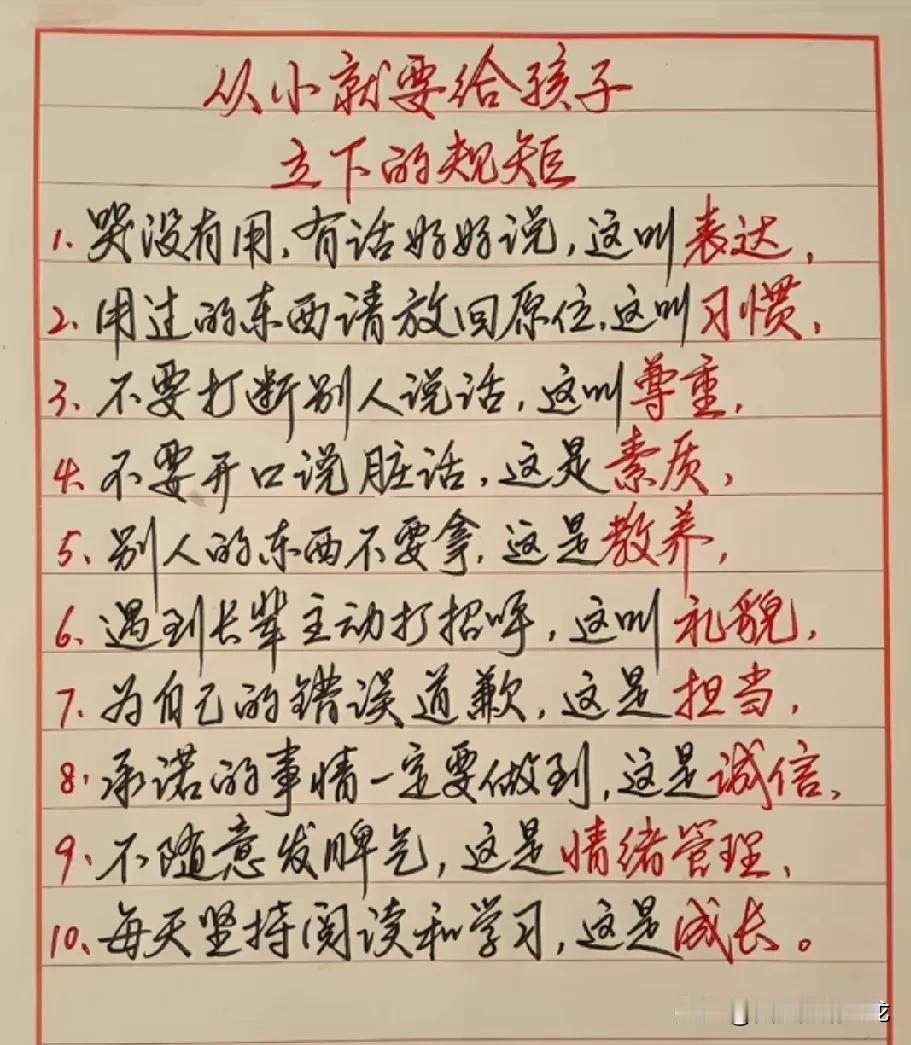 从小就要给孩子
立下的规矩
1. 哭没有用,有话好好说,这叫表达,
2. 用过的东西请放回原位,这叫习惯,
3、不要打断别人说话,这叫尊重,
4、不要开口说脏话,这是素质,
5、别人的东西不要拿,这是教养,
6、遇到长辈主动打招呼,这叫礼貌,
7、为自己的错误道歉,这是担当,
8、承诺的事情一定要做到,这是诚信,
9、不随意发脾气,这是情绪管理、
10、每天坚持阅读和学习,这是成长。